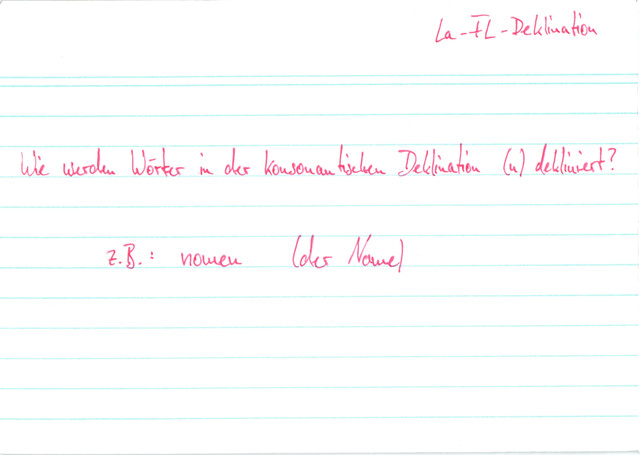 La-FL-Deklination
Wie werden Wörter in der konsonantischen Deklination (n) dekliniert?
z.B.: nomen (der Name)